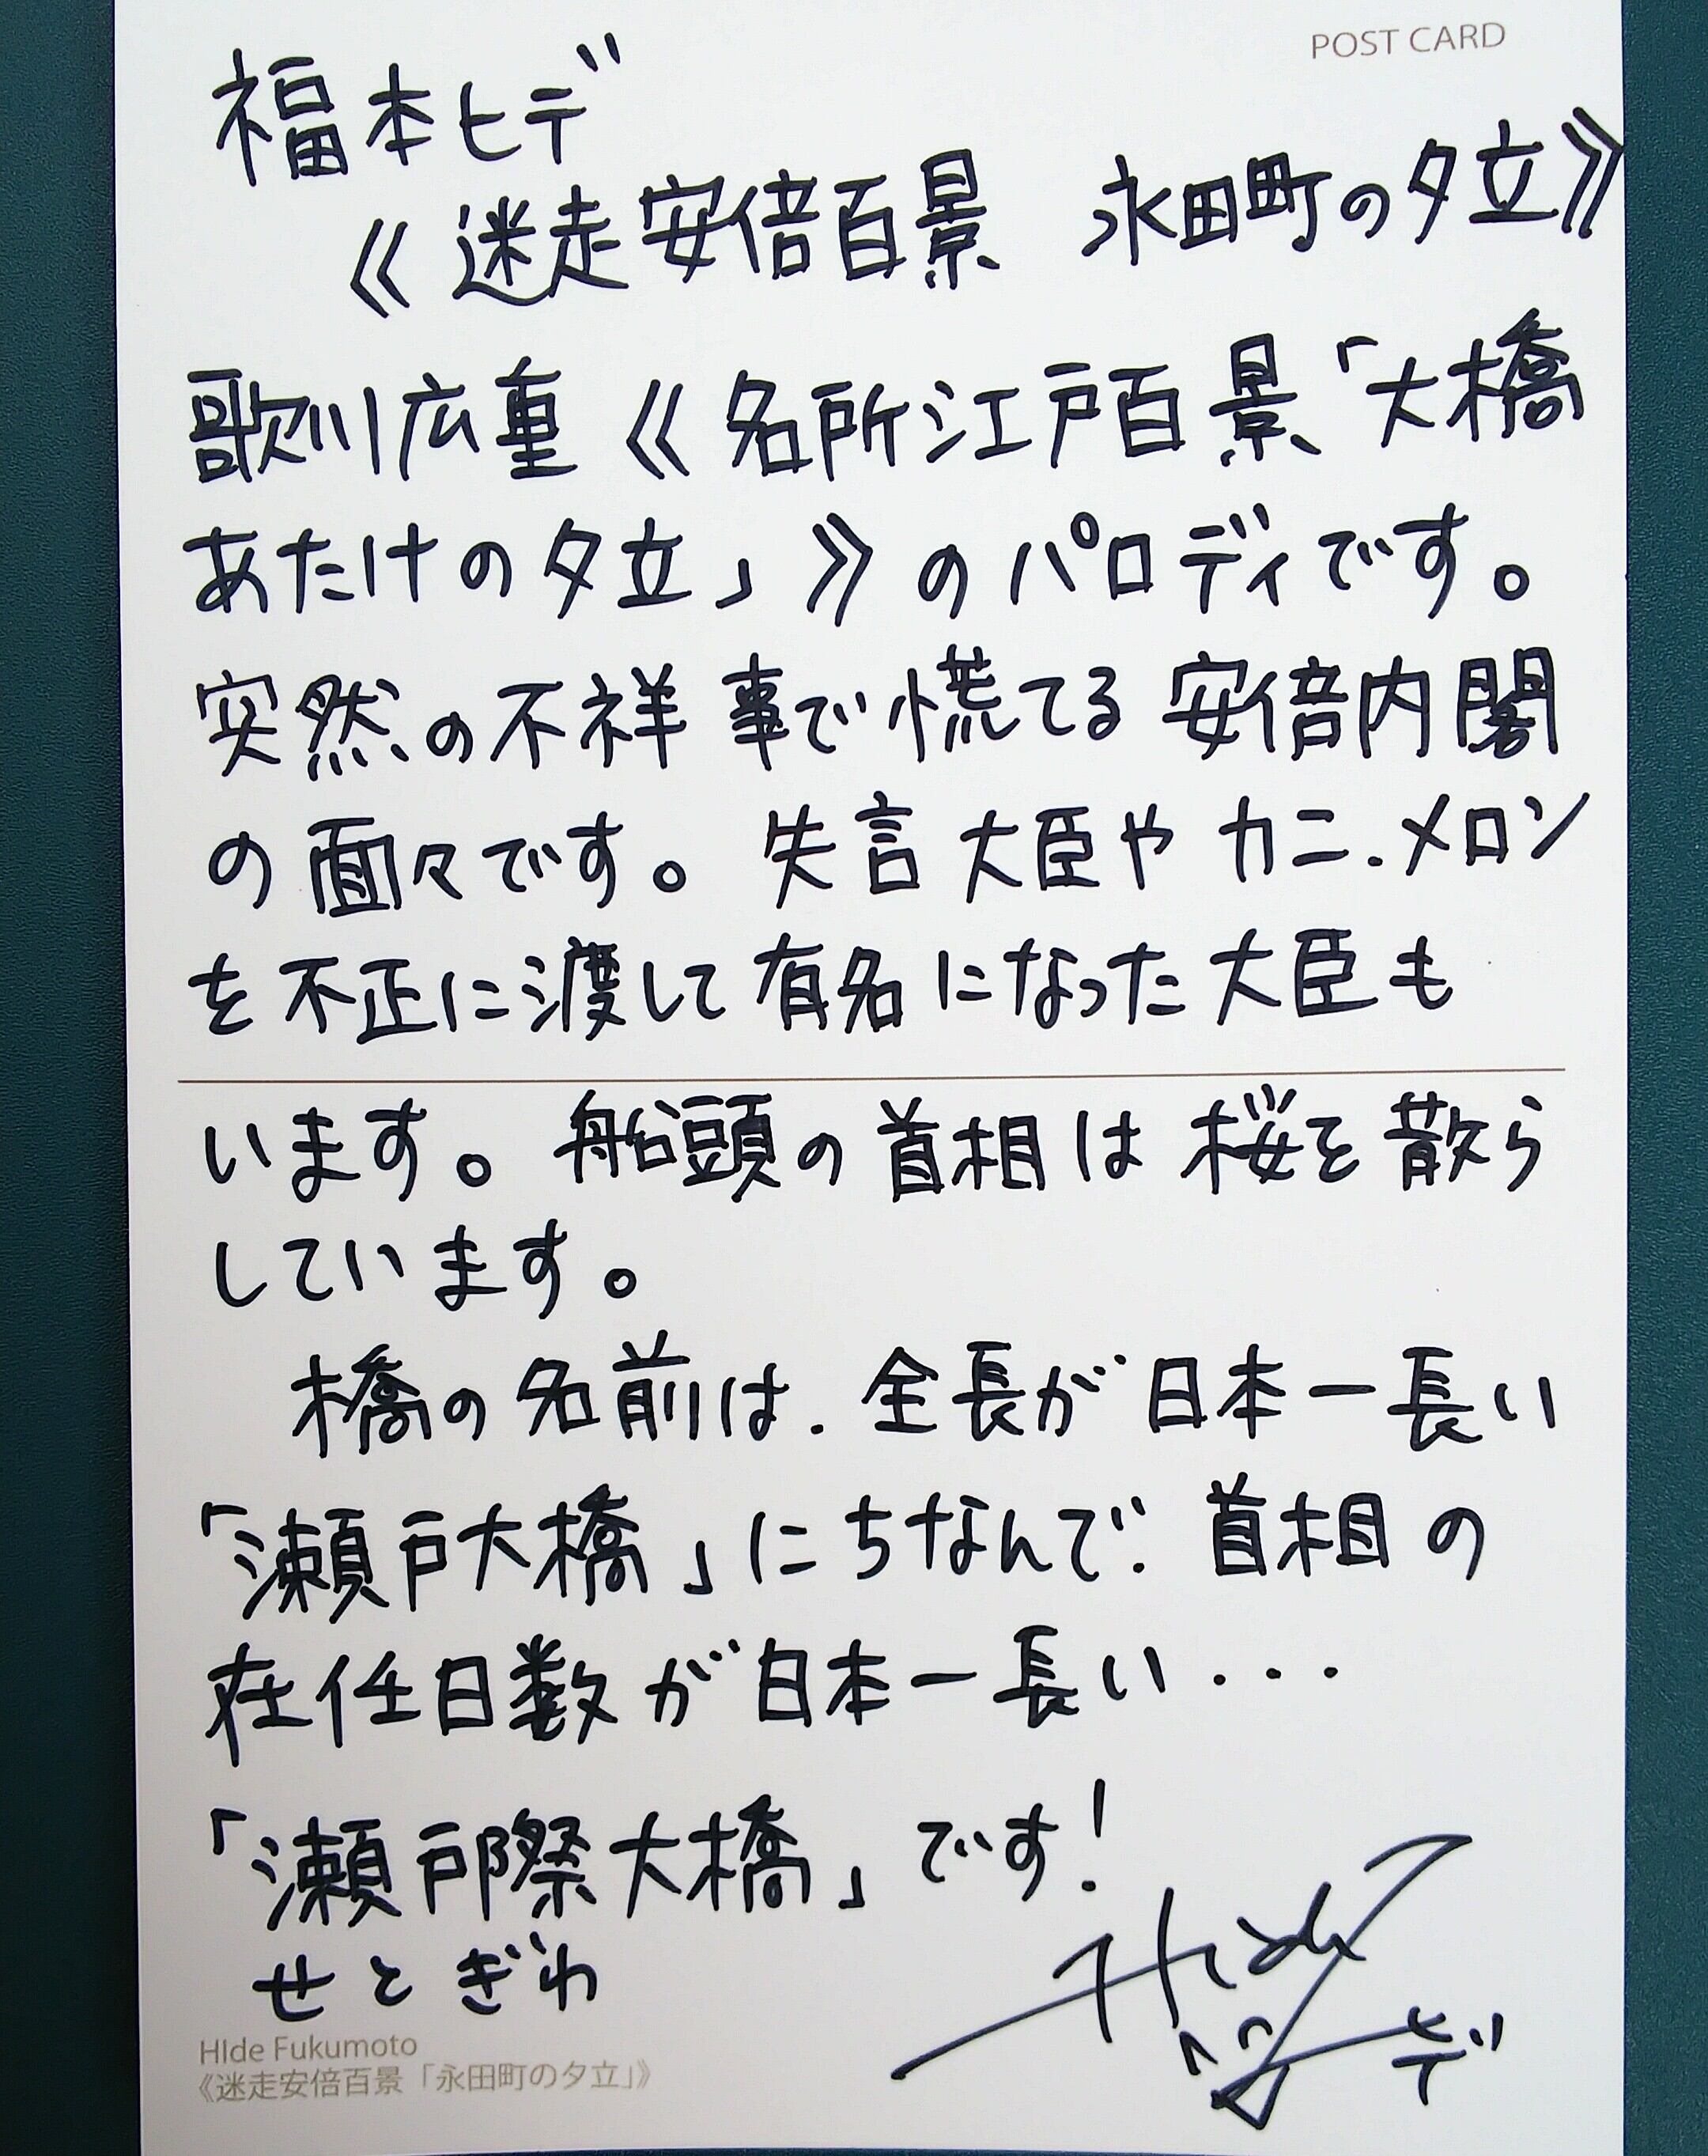 POST CARD
福本ヒデ
《迷走安倍百景　永田町の夕立》
歌川広重《名所江戸百景「大橋
あたけの夕立」》のパロディです。
突然の不祥事で慌てる安倍内閣
の面々です。失言大臣やカニ.メロン
を不正に渡して有名になった大臣も
います。船頭の首相は桜を散ら
しています。
橋の名前は.全長が日本一長い
「瀬戸大橋」にちなんで.首相の
在任日数が日本一長い...
「瀬戸際大橋」です!
せとぎわ
Hide
ヒデ
HIde Fukumoto
《迷走安倍百景「永田町の夕立」》